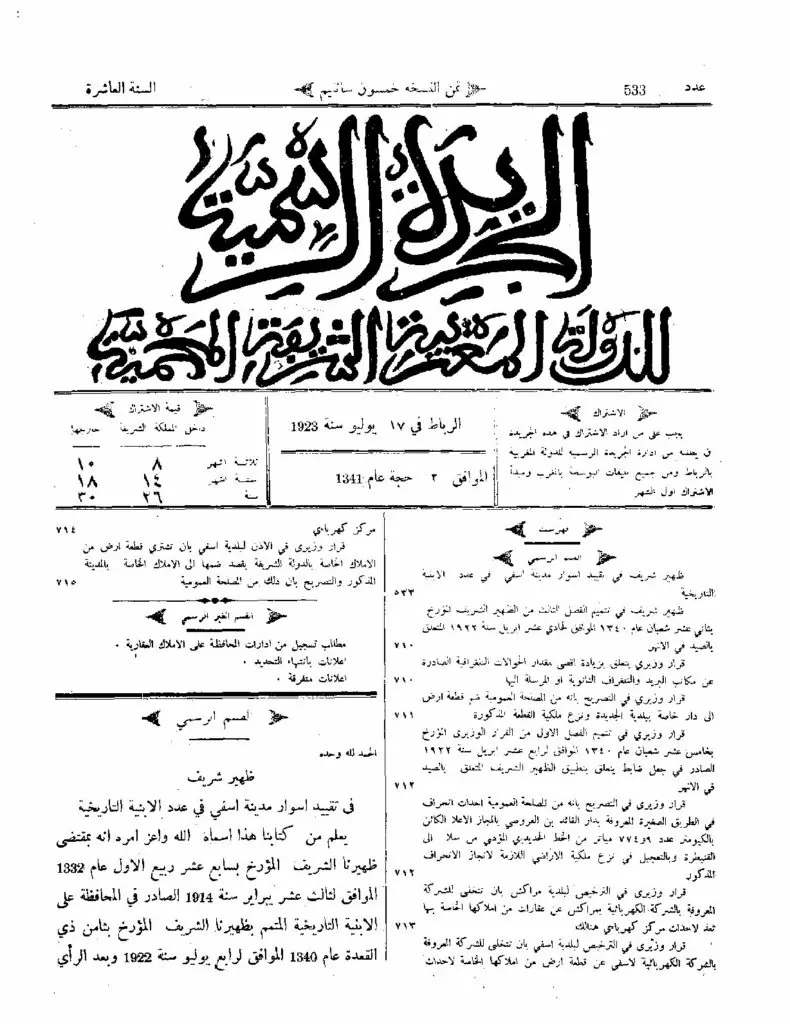 عدد 533
ثمن النسخة خمسون سانتيم
السنة العاشرة
الجريدة الرسمية
للدولة المغربية الشريفة المحمية
الاشتراك
يجب على من اراد الاشتراك في هذه الجريدة
ان يطلبه من ادارة الجريدة الرسمية للدولة المغربية
بالرباط ومن جميع ديمقات البوسطة بالمغرب ومبدأ
الاشتراك اول الشهر
الرباط في ١٧ يوليو سنة 1923
الموافق ٢ حجة عام 1341
قيمة الاشتراك
داخل المملكة الشريفة خارجها
ثلاثة اشهر ٨ ١٠
ستة اشهر ١٤ ١٨
سنة ٢٦ ٣٠
فهرست
القسم الرسمي
ظهير شريف في تقييد اسوار مدينة اسفي في عدد الابنية
التاريخية ٥٣٣
ظهير شريف في تتميم الفصل الثالث من الظهير الشريف المؤرخ
بثاني عشر شعبان عام ١٣٤٠ الموافق لحادي عشر ابريل سنة ١٩٢٢ المتعلق
بالصيد في الانهر ٧١٠
قرار وزيري يتعلق بزيادة اقصى مقدار الحوالات التلغرافية الصادرة
عن مكاتب البريد والتلغراف الثانوية او المرسلة اليها ٧١٠
قرار وزيري في التصريح بانه من المصلحة العمومية ضم قطعة ارض
الى دار خاصة ببلدية الجديدة ونزع ملكية القطعة المذكورة ٧١١
قرار وزيري في تتميم الفصل الاول من القرار الوزيري المؤرخ
بخامس عشر شعبان عام ١٣٤٠ الموافق لرابع عشر ابريل سنة ١٩٢٢
الصادر في جعل ضابط يتعلق بتطبيق الظهير الشريف المتعلق بالصيد
في الانهر ٧١٢
قرار وزيري في التصريح بانه من المصلحة العمومية احداث انحراف
في الطريق الصغيرة المعروفة بدار القائد بن العروصي بالمجاز الاعلا الكائن
بالكيلومتر عدد ٩و٧٧٤ مياتر من الخط الحديدي المؤدي من سلا الى
القنيطرة وبالتعجيل في نزع ملكية الاراضي اللازمة لانجاز الانحراف
المذكور ٧١٢
قرار وزيري في الترخيص لبلدية مراكش بان تتخلى للشركة
المعروفة بالشركة الكهربائية بمراكش عن عقارات من املاكها الخاصة بها
تعد لاحداث مركز كهربائي هنالك ٧١٣
قرار وزيري في الترخيص لبلدية اسفي بان تتخلى للشركة المعروفة
بالشركة الكهربائية لاسفي عن قطعة ارض من املاكها الخاصة لاحداث
مركز كهربائي ٧١٤
قرار وزيري في الاذن لبلدية اسفي بان تشتري قطعة ارض من
الاملاك الخاصة بالدولة الشريفة بقصد ضمها الى الاملاك الخاصة بالمدينة
المذكور والتصريح بان ذلك من المصلحة العمومية ٧١٥
القسم الغير الرسمي
مطالب تسجيل من ادارات المحافظة على الاملاك العقارية .
اعلانات بانتهاء التحديد .
اعلانات متفرقة .
القسم الرسمي
الحمد لله وحده
ظهير شريف
في تقييد اسوار مدينة اسفي في عدد الابنية التاريخية
يعلم من كتابنا هذا اسماه الله واعز امره انه بمقتضى
ظهيرنا الشريف المؤرخ بسابع عشر ربيع الاول عام 1332
الموافق لثالث عشر يبراير سنة 1914 الصادر في المحافظة على
الابنية التاريخية المتمم بظهيرنا الشريف المؤرخ بثامن ذي
القعدة عام 1340 الموافق لرابع يوليو سنة 1922 وبعد الرأي